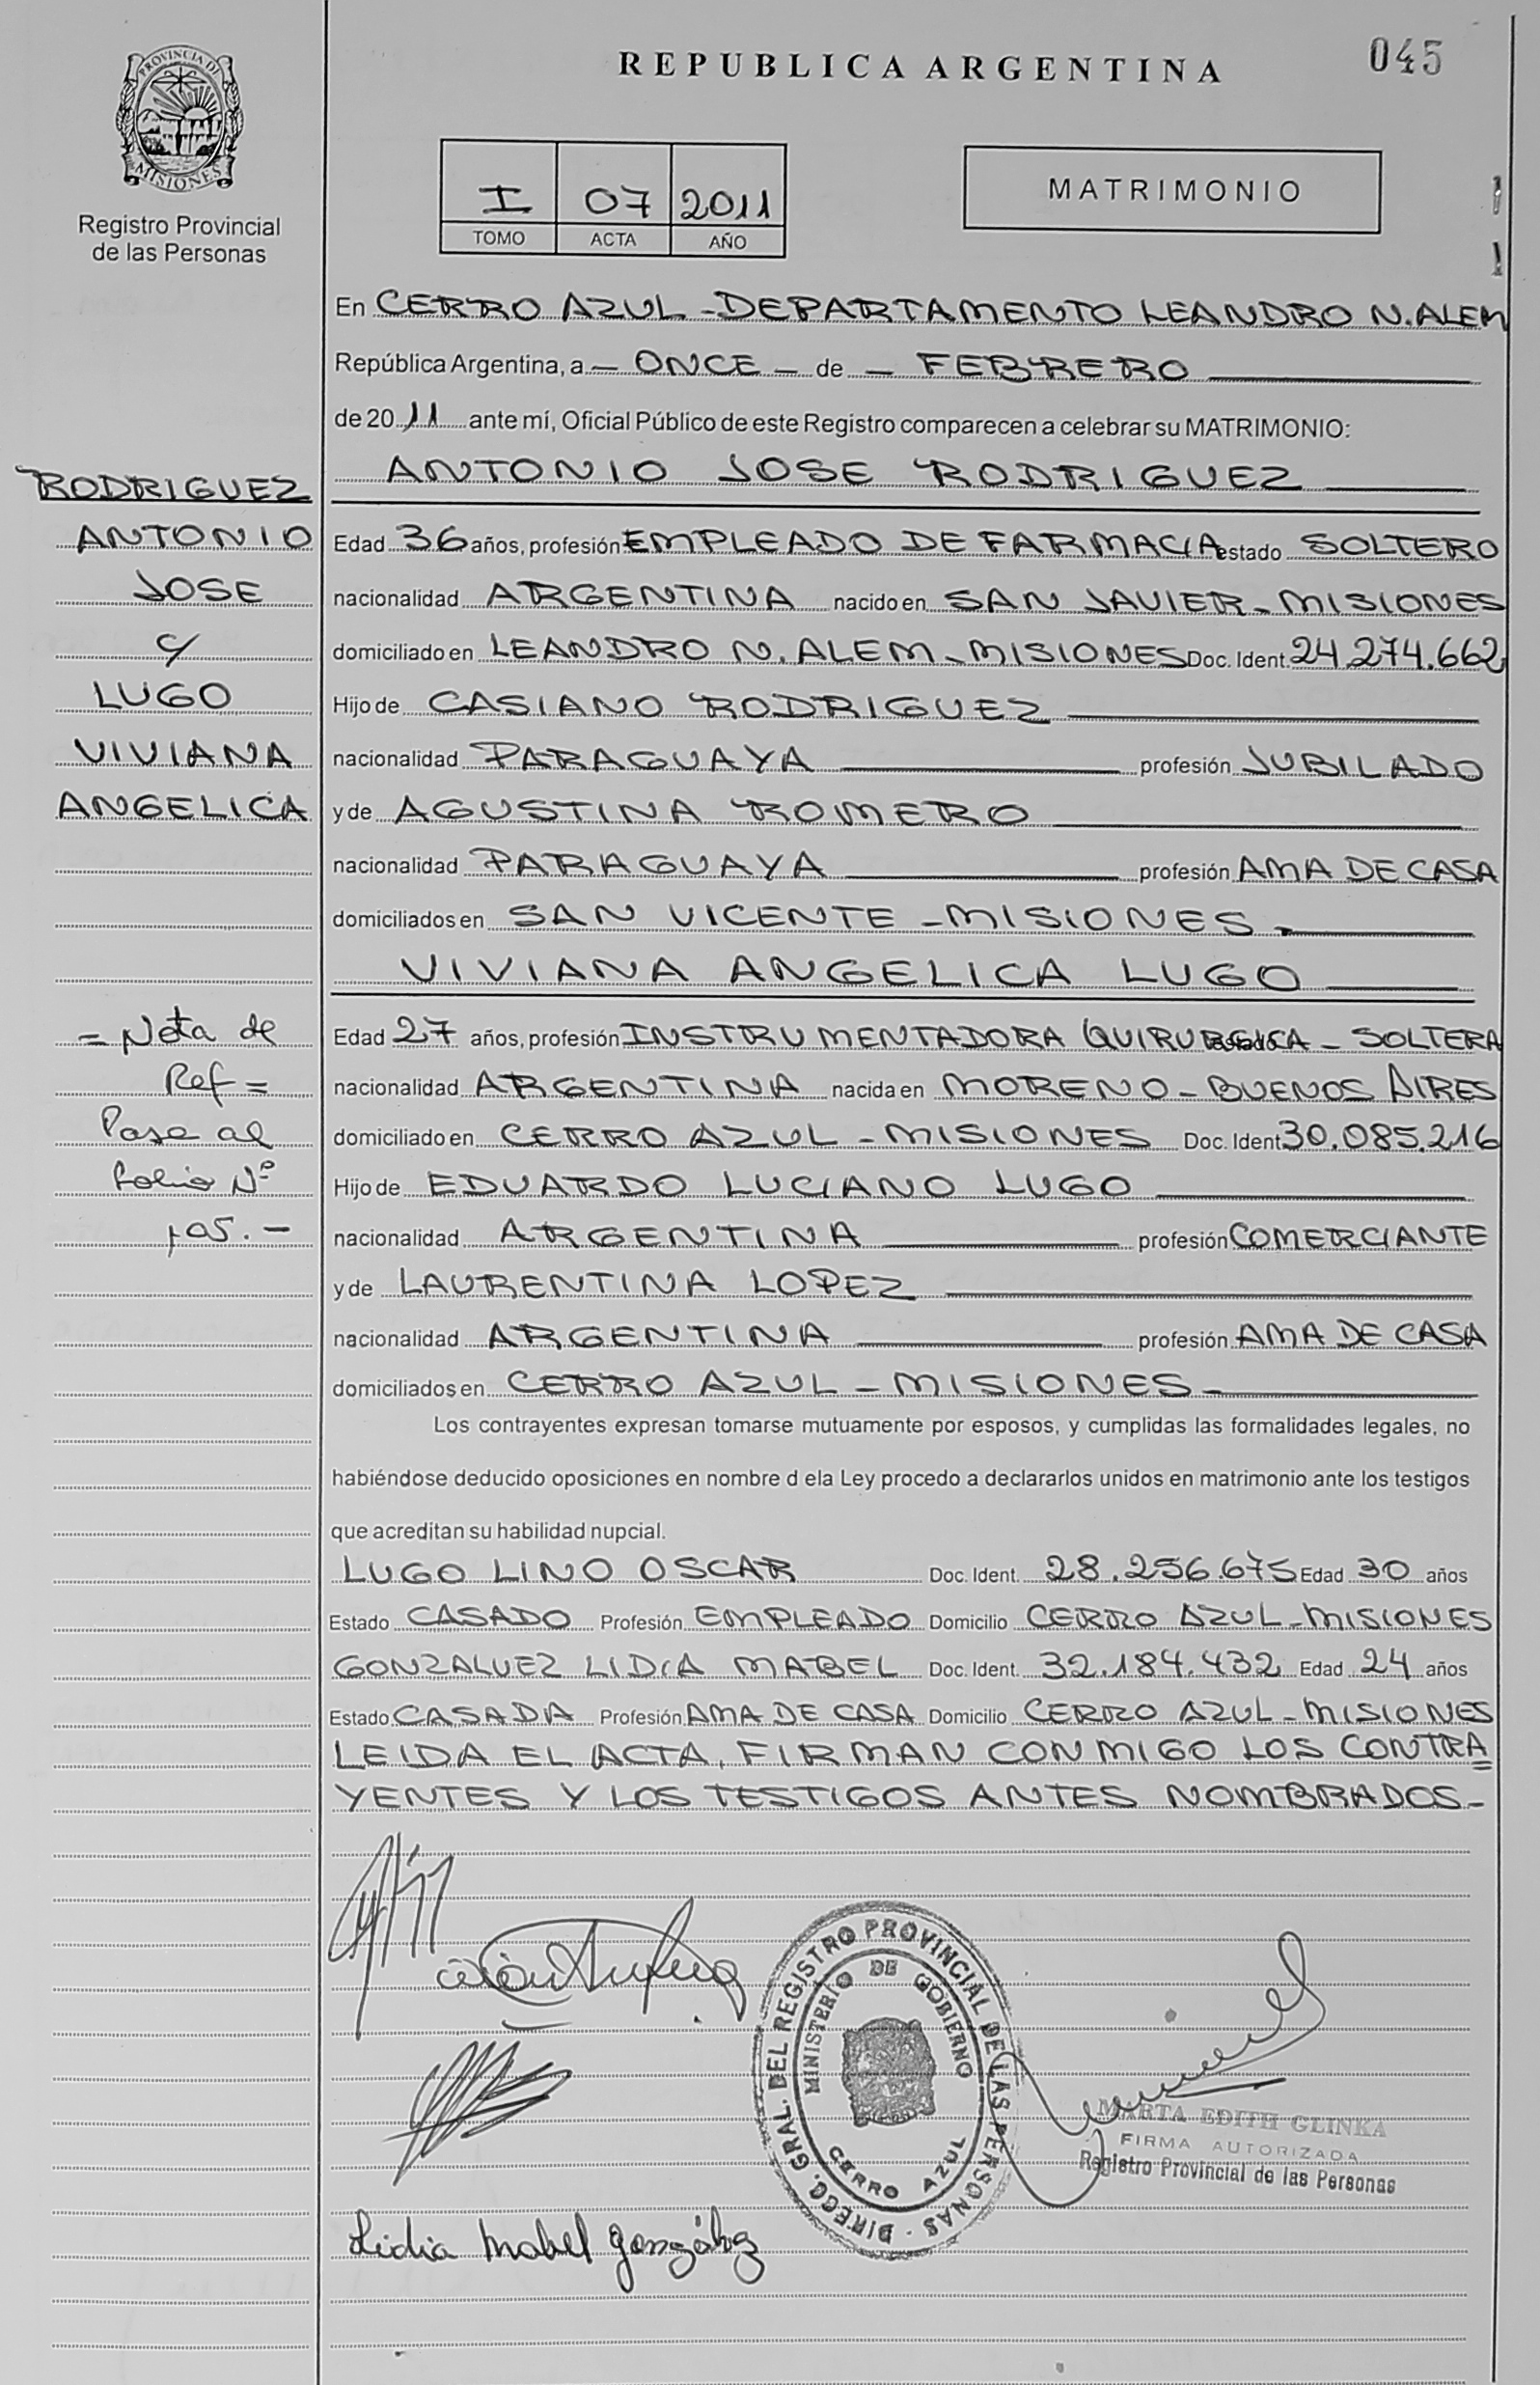 REPUBLICA ARGENTINA
045
PROVINCIA DE
MISIONES
Registro Provincial
de las Personas
I 07 2011
TOMO ACTA AÑO
MATRIMONIO
En CERRO AZUL - DEPARTAMENTO LEANDRO N. ALEM
República Argentina, a - ONCE - de - FEBRERO
de 2011 ante mí, Oficial Público de este Registro comparecen a celebrar su MATRIMONIO:
ANTONIO JOSE RODRIGUEZ
RODRIGUEZ
ANTONIO
JOSE
c/
LUGO
VIVIANA
ANGELICA
Edad 36 años, profesión EMPLEADO DE FARMACIA estado SOLTERO
nacionalidad ARGENTINA nacido en SAN JAVIER - MISIONES
domiciliado en LEANDRO N. ALEM - MISIONES Doc. Ident. 24.274.662
Hijo de CASIANO RODRIGUEZ
nacionalidad PARAGUAYA profesión JUBILADO
y de AGUSTINA ROMERO
nacionalidad PARAGUAYA profesión AMA DE CASA
domiciliados en SAN VICENTE - MISIONES -
VIVIANA ANGELICA LUGO
= Nota de
Ref =
Pase al
folio Nº
105. -
Edad 27 años, profesión INSTRUMENTADORA QUIRURGICA - SOLTERA
nacionalidad ARGENTINA nacida en MORENO - BUENOS AIRES
domiciliado en CERRO AZUL - MISIONES Doc. Ident. 30.085.216
Hijo de EDUARDO LUCIANO LUGO
nacionalidad ARGENTINA profesión COMERCIANTE
y de LAURENTINA LOPEZ
nacionalidad ARGENTINA profesión AMA DE CASA
domiciliados en CERRO AZUL - MISIONES -
Los contrayentes expresan tomarse mutuamente por esposos, y cumplidas las formalidades legales, no
habiéndose deducido oposiciones en nombre d ela Ley procedo a declararlos unidos en matrimonio ante los testigos
que acreditan su habilidad nupcial.
LUGO LINO OSCAR Doc. Ident. 28.256.675 Edad 30 años
Estado CASADO Profesión EMPLEADO Domicilio CERRO AZUL - MISIONES
GONZALUEZ LIDIA MABEL Doc. Ident. 32.184.432 Edad 24 años
Estado CASADA Profesión AMA DE CASA Domicilio CERRO AZUL - MISIONES
LEIDA EL ACTA, FIRMAN CONMIGO LOS CONTRA=
YENTES Y LOS TESTIGOS ANTES NOMBRADOS -
DIRECC. GRAL. DEL REGISTRO PROVINCIAL DE LAS PERSONAS
MINISTERIO DE GOBIERNO
CERRO AZUL
MARTA EDITH GLINKA
FIRMA AUTORIZADA
Registro Provincial de las Personas
Lidia Mabel